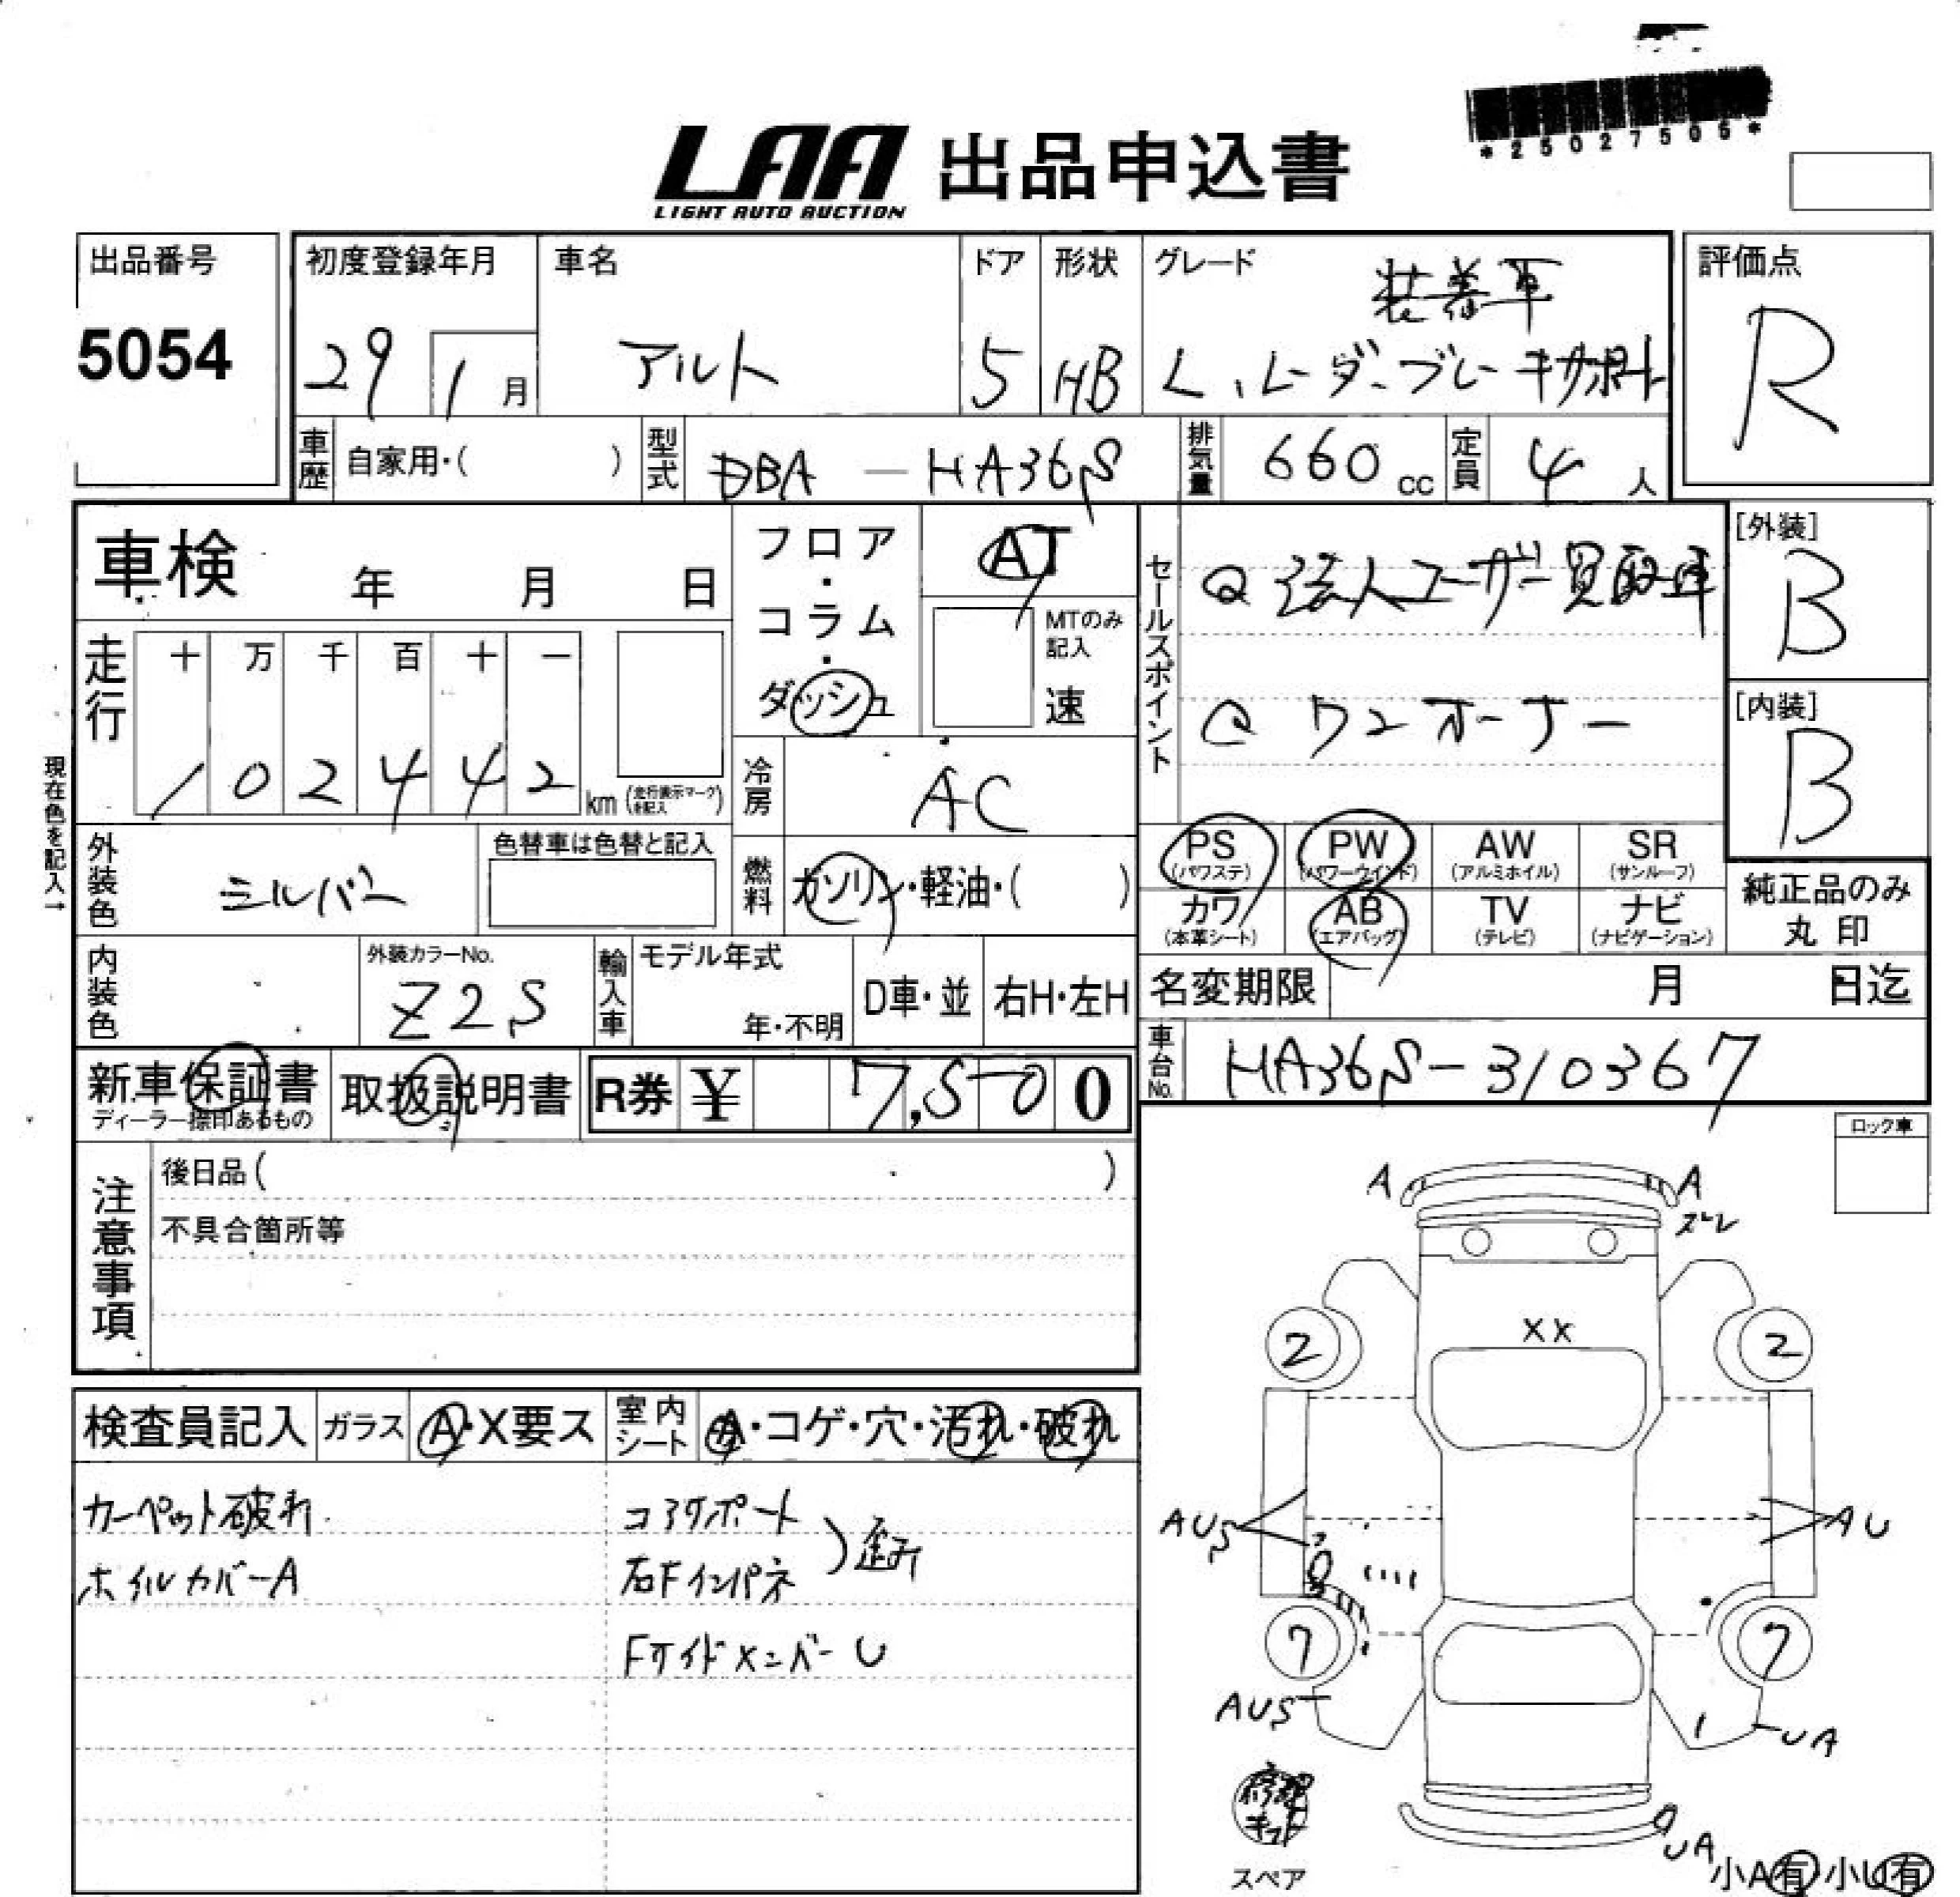 *25027505*
LAA 出品申込書
LIGHT AUTO AUCTION
出品番号
5054
初度登録年月
29 1 月
車名
アルト
ドア
5
形状
HB
グレード
装着車
L、レーダーブレーキサポート
評価点
R
車歴 自家用・( )
型式 DBA — HA36S
排気量 660 cc
定員 4 人
車検 年 月 日
走行 十 万 千 百 十 一
1 0 2 4 4 2 km (走行表示マークを記入)
現在色を記入→
フロア・コラム・ダッシュ
AT
MTのみ記入
速
冷房 AC
燃料 ガソリン・軽油・( )
外装色 シルバー
色替車は色替と記入
内装色
外装カラーNo.
Z2S
輸入車 モデル年式
年・不明
D車・並 右H・左H
新車保証書
ディーラー捺印あるもの
取扱説明書
R券 ¥ 7,500
セールスポイント
法人ユーザー買取車
ワンオーナー
[外装]
B
[内装]
B
PS (パワステ)
PW (パワーウインド)
AW (アルミホイル)
SR (サンルーフ)
カワ (本革シート)
AB (エアバッグ)
TV (テレビ)
ナビ (ナビゲーション)
純正品のみ
丸印
名変期限 月 日迄
車台No. HA36S-310367
注意事項
後日品( )
不具合箇所等
ロック車
検査員記入 ガラス A・X要ス
室内シート A・コゲ・穴・汚れ・破れ
カーペット破れ
ホイルカバーA
コアサポート
右Fインパネ
歪み
FサイドメンバーU
A A
ズレ
XX
2 2
AUS AU
7 7
AUS UA
修理キット
スペア
UA
小A有・小U有